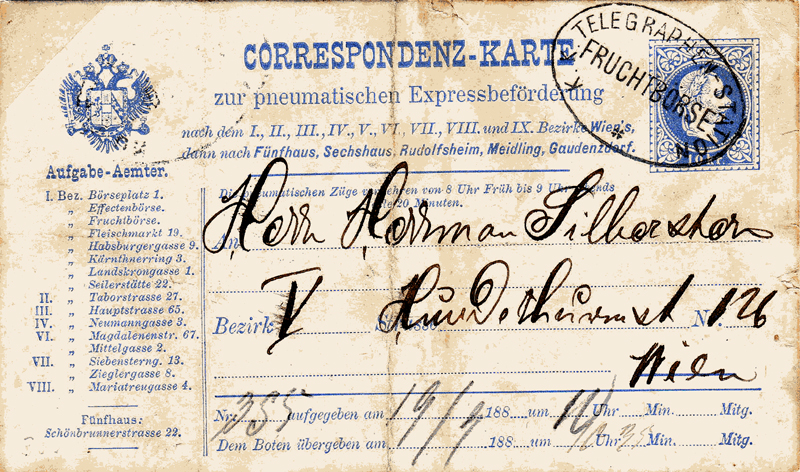 CORRESPONDENZ-KARTE
zur pneumatischen Expressbeförderung
nach dem I., II., III., IV., V., VI., VII., VIII. und IX. Bezirke Wien's,
dann nach Fünfhaus, Sechshaus, Rudolfsheim, Meidling, Gaudenzdorf.
K. K. TELEGRAPHEN STATION
FRUCHTBÖRSE
Die pneumatischen Züge verkehren von 8 Uhr Früh bis 9 Uhr Abends
alle 20 Minuten.
Aufgabe-Aemter.
I. Bez. Börseplatz 1.
„ Effectenbörse.
„ Fruchtbörse.
„ Fleischmarkt 19.
„ Habsburgergasse 9.
„ Kärnthnerring 3.
„ Landskrongasse 1.
„ Seilerstätte 22.
II. „ Taborstrasse 27.
III. „ Hauptstrasse 65.
IV. „ Neumanngasse 3.
VI. „ Magdalenenstr. 67.
„ Mittelgasse 2.
VII. „ Siebensterng. 13.
„ Zieglergasse 8.
VIII. „ Mariatreugasse 4.
Fünfhaus:
Schönbrunnerstrasse 22.
An Herrn Herrman Silberstern
Bezirk V Strasse Hundsthurmst Nr. 126
Wien
Nr. 355 aufgegeben am 19/7 188 um Uhr Min. Mitg.
Dem Boten übergeben am 188 um Uhr Min. Mitg.